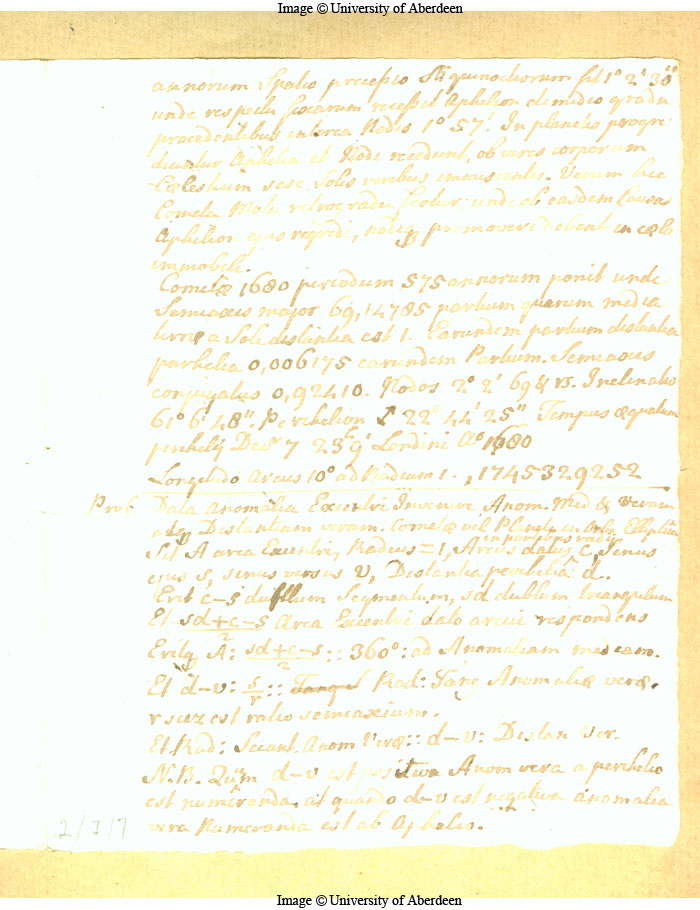 Image © University of Aberdeen
annorum spatio precessio Æquinoctiorum sit 1° 2' 30"
unde respectu fixarum recessit Aphelion dimidio gradu
procedentibus interea Nodis 1° 57'. In planetis progre
diuntur Aphelia et Nodi recedunt, ob vires corporum
Cœlestium sese Solis viribus immiscentes. Verum hic
Cometa Motu retrogrado fertur; unde ob easdem Causas
Aphelion ejus regredi, nodiq promoveri debent in cœlo
immobili.
Cometæ 1680 periodum 575 annorum ponit unde
Semiaxis major 69,14785 partium quarum media
terræ a Sole distantia est 1. Earundem partium distantia
parhelia 0,006175 earundem Partium. Semiaxis
conjugatus 0,92410. Nodos 2° 2' 69 & ♑. Inclinatio
61° 6' 48". Perihelion ♐ 22° 44' 25" Tempus æquatum
perihelij Decr 7 23h 9' Londini Ao 1680
Longitudo Arcus 10° ad Radium 1. ,1745329252
Prob Data Anomalia Excentri Invenire Anom. Med & Veram
atq Distantiam veram. Cometæ vel Planetæ in Orbe Elliptica
in partibus radij
Sit A area Excentri, Radius = 1, Arcus datus c, Sinus
ejus s, sinus versus v, Distantia perhelia d.
Erit c-s duplum Segmentum, sd duplum triangulum
Et sd+c-s/2 Area Excentri dato arcui respondens
Eritq A: sd+c-s/2 :: 360°: ad Anomaliam mediam.
Et d-v: s/r :: Tang s Rad: Tang Anomaliæ veræ.
r scilz est ratio semiaxium.
Et Rad: Secant. Anom Veræ :: d-v: Distan ver.
N.B. Qum d-v est positiva Anom vera a perhelio
est numeranda. at quando d-v est negativa anomalia
vera Numeranda est ab Aphelio.
2/7/7
Image © University of Aberdeen